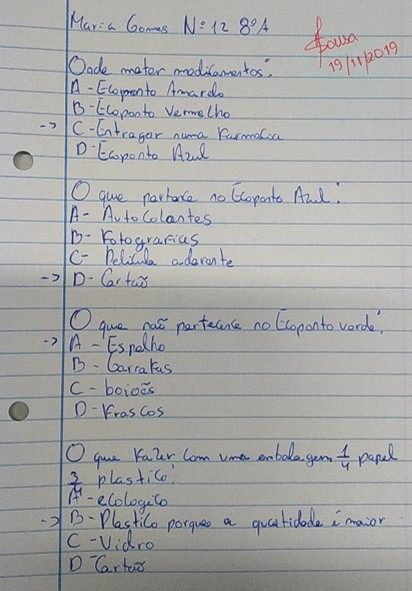 Maria Gomes Nº12 8ºA
Sousa
19/11/2019
Onde meter medicamentos?
A - Ecoponto Amarelo
B - Ecoponto Vermelho
-> C - Entregar numa Farmacia
D - Ecoponto Azul
O que pertence no Ecoponto Azul?
A - Autocolantes
B - Fotografias
C - Pelicula aderente
-> D - Cartão
O que não pertence no Ecoponto verde?
-> A - Espelho
B - Garrafas
C - boiões
D - Frascos
O que fazer com uma embalagem 1/4 papel
3/4 plastico?
A - ecologico
-> B - Plastico porque a quatidade é maior
C - Vidro
D - Cartão